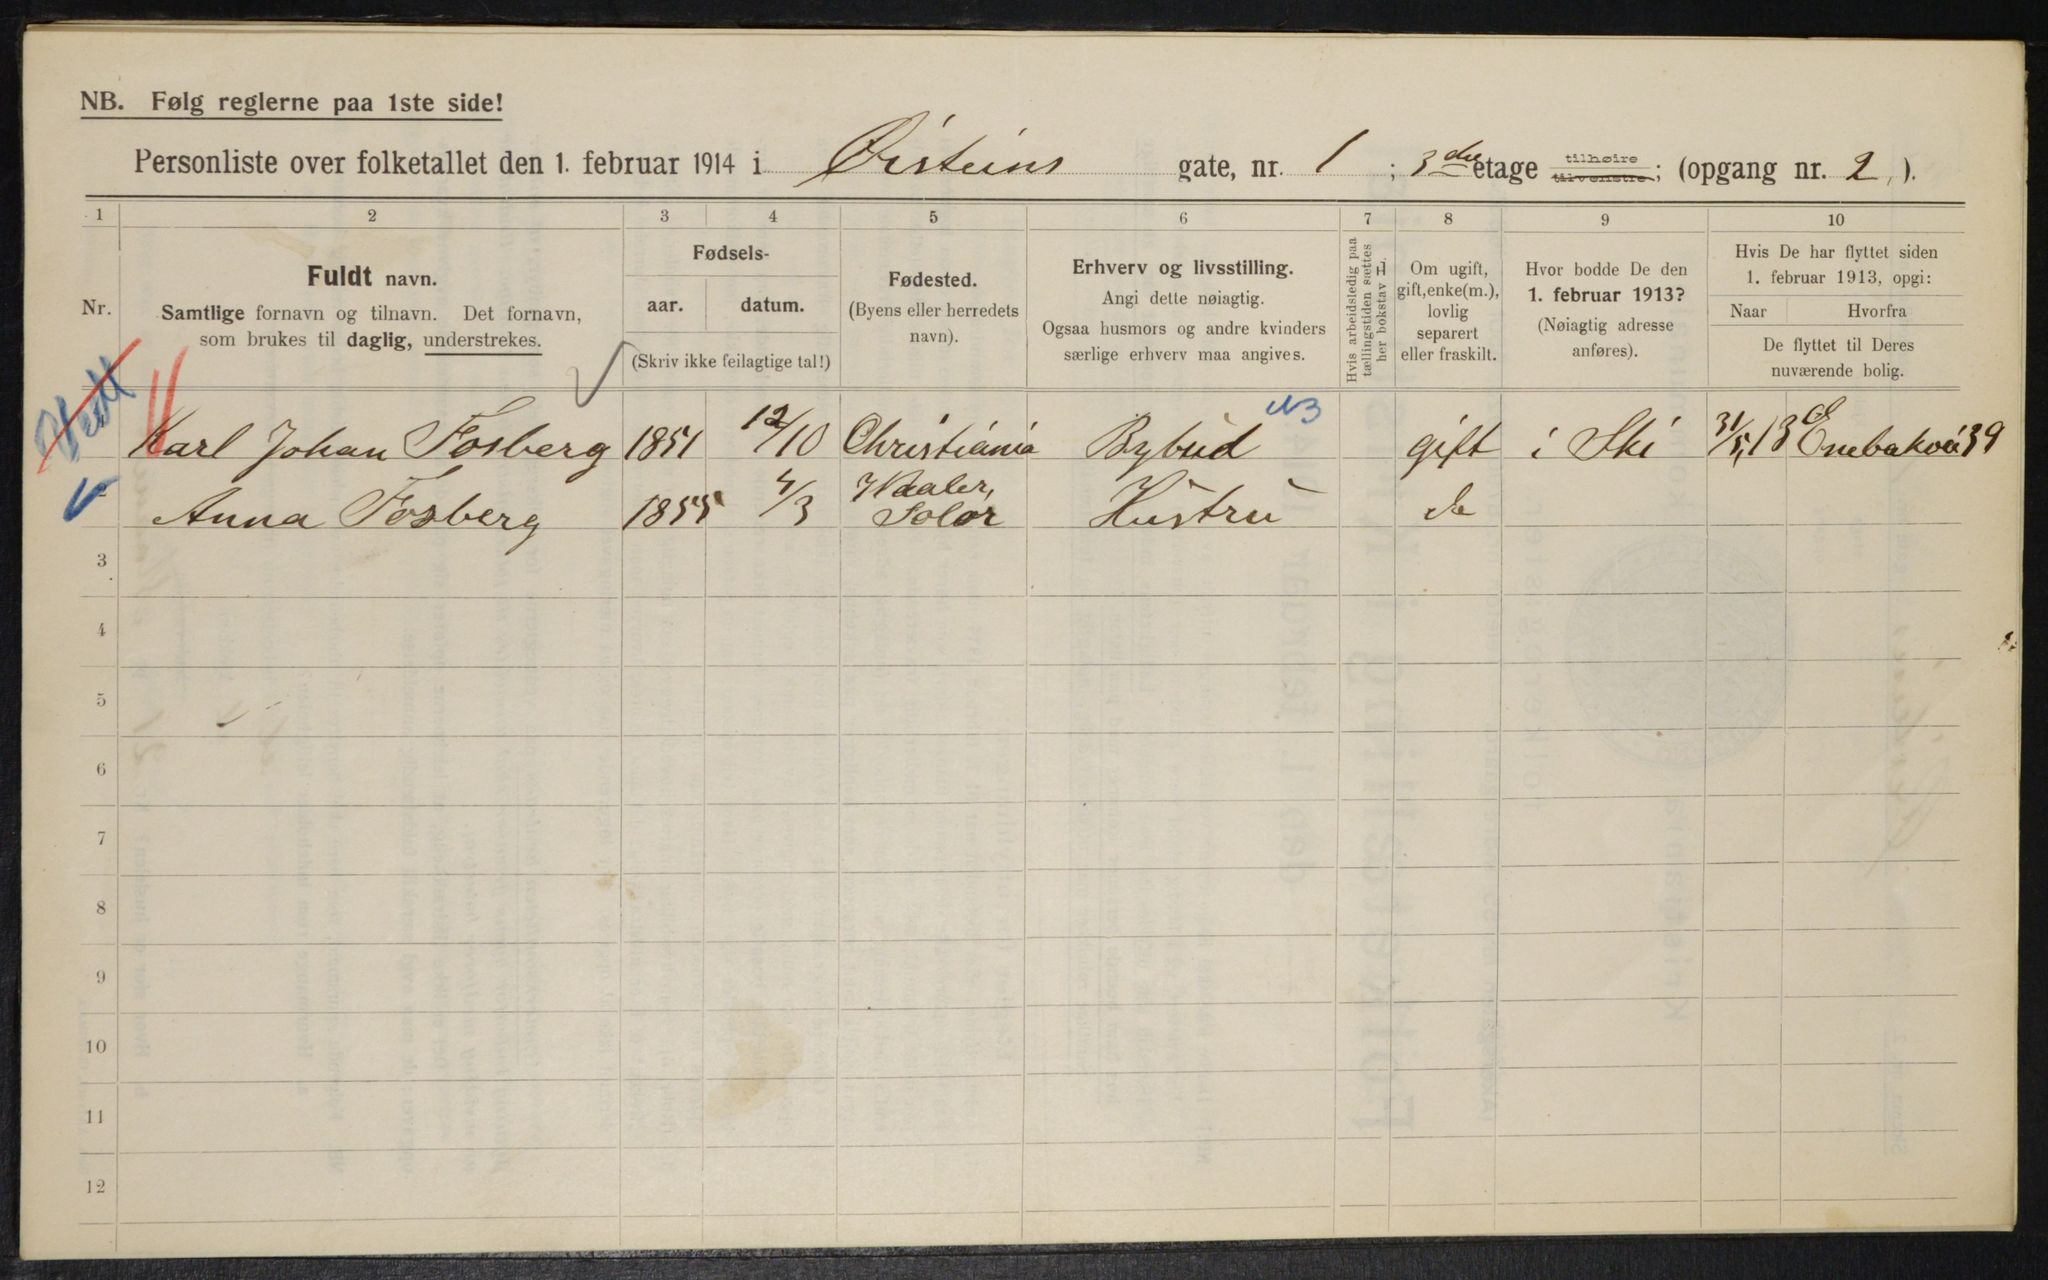 NB. Følg reglerne paa 1ste side!
Personliste over folketallet den 1. februar 1914 i Øisteins gate, nr. 1 ; 3die etage tilhøire tilvenstre; (opgang nr. 2, ).
1 2 3 4 5 6 7 8 9 10
Nr.
Fuldt navn.
Samtlige fornavn og tilnavn. Det fornavn,
som brukes til daglig, understrekes.
Fødsels-
aar. datum.
(Skriv ikke feilagtige tal!)
Fødested.
(Byens eller herredets
navn).
Erhverv og livsstilling.
Angi dette nøiagtig.
Ogsaa husmors og andre kvinders
særlige erhverv maa angives.
Hvis arbeidsledig paa
tællingstiden sættes
her bokstav L.
Om ugift,
gift, enke(m.),
lovlig
separert
eller fraskilt.
Hvor bodde De den
1. februar 1913?
(Nøiagtig adresse
anføres).
Hvis De har flyttet siden
1. februar 1913, opgi:
Naar Hvorfra
De flyttet til Deres
nuværende bolig.
Karl Johan Fosberg 1851 12/10 Christiania Bybud gift i Ski 31/5, 13 Enebakvei 39
Anna Fosberg 1855 4/3 Waaler, Solør Hustru do
3
4
5
6
7
8
9
10
11
12